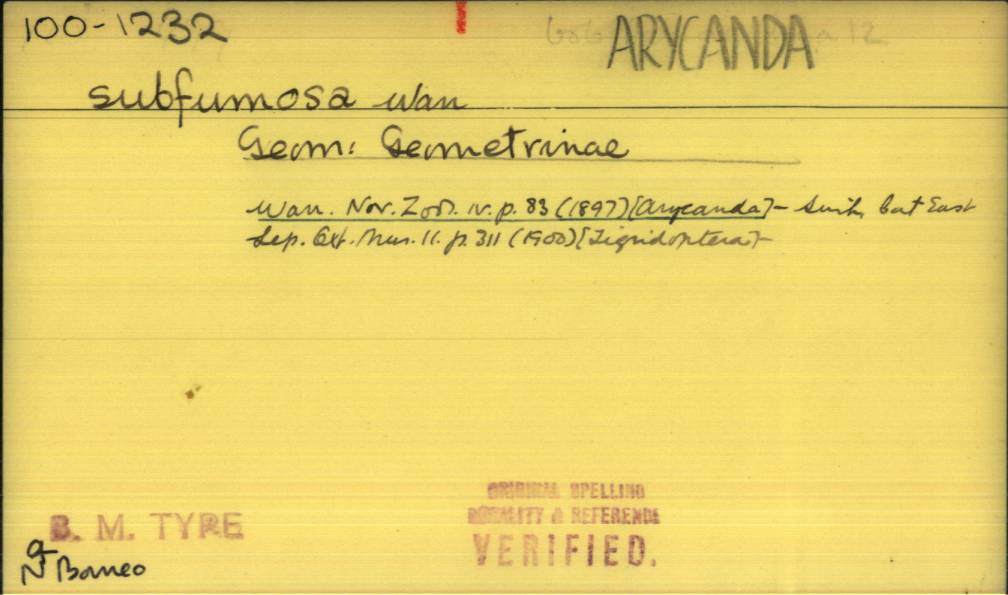 100-1232
ARYCANDA
subfumosa Warr
Geom: Geometrinae
Warr. Nov. Zool. IV. p. 83 (1897) [Arycanda] - Swinh. Cat East
Lep. Oxf. Mus. 11. p. 311 (1900) [Tigridoptera] -
B. M. TYPE
N Borneo
ORIGINAL SPELLING
LOCALITY & REFERENCE
VERIFIED.